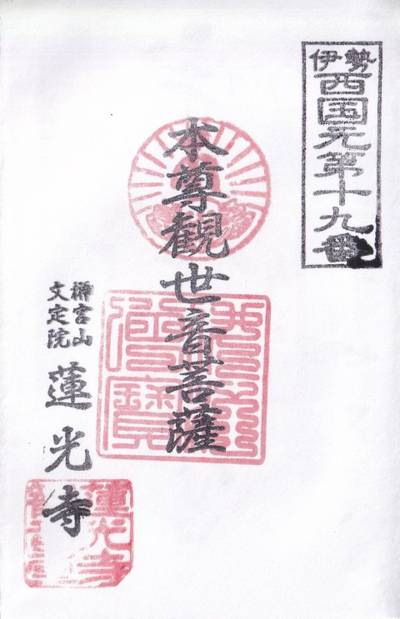 伊勢
西国元第十九番
本尊観世音菩薩
榊宮山
文定院
蓮光寺
蓮光寺